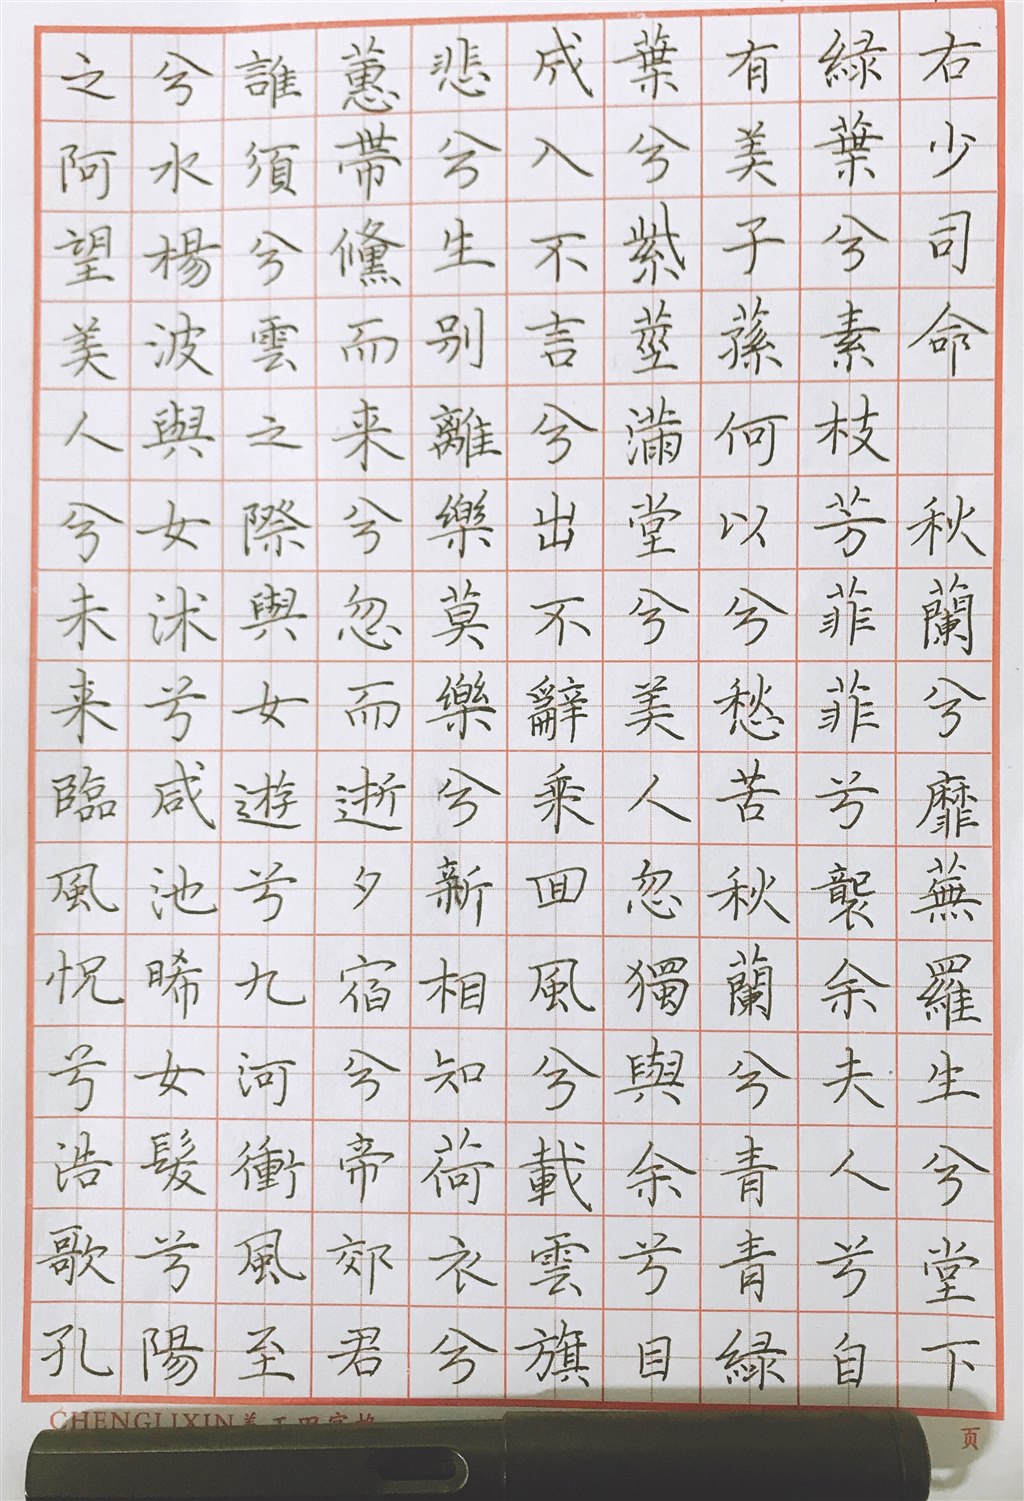 右少司命 秋蘭兮靡蕪羅生兮堂下
緑葉兮素枝芳菲菲兮襲余夫人兮自
有美子蓀何以兮愁苦秋蘭兮青青緑
葉兮紫莖滿堂兮美人忽獨與余兮目
成入不言兮出不辭乘回風兮載雲旗
悲兮生别離樂莫樂兮新相知荷衣兮
蕙帶儵而来兮忽而逝夕宿兮帝郊君
誰須兮雲之際與女遊兮九河衝風至
兮水楊波與女沭兮咸池晞女髮兮陽
之阿望美人兮未来臨風怳兮浩歌孔
CHENGLIXIN
页